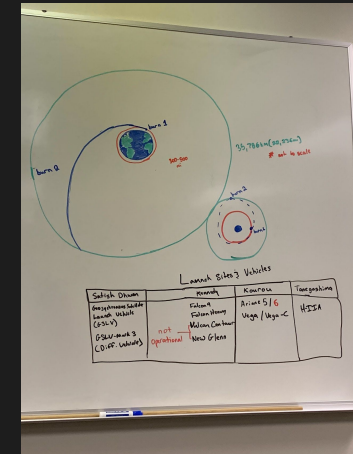 burn 1
burn 2
35,786km
# not to scale
300-500
burn 2
burn 1
Launch Sites & Vehicles
Satish Dhawan
Kennedy
Kourou
Tanegashima
Geosynchronous Satellite
Launch Vehicle
(GSLV)
GSLV-mark 3
(Diff. Vehicle)
not
operational
Falcon 9
Falcon Heavy
Vulcan Centaur
New Glenn
Ariane 5/6
Vega/Vega-C
HIIA